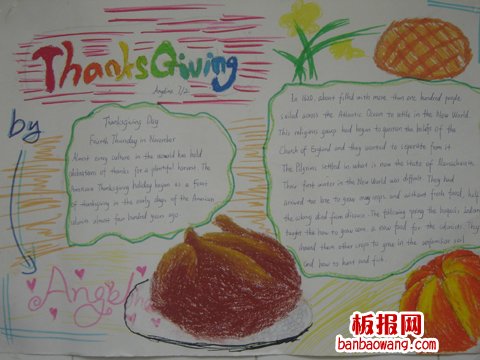 ThanksGiving
Angelina 7/2
by
Angelina
Thanksgiving Day
Fourth Thursday in November
Almost every culture in the world has held
celebrations of thanks for a plentiful harvest. The
American Thanksgiving holiday began as a feast
of thanksgiving in the early days of the American
colonies almost four hundred years ago
In 1620, a boat filled with more than one hundred people
sailed across the Atlantic Ocean to settle in the New World.
This religious group had begun to question the beliefs of the
Church of England and they wanted to separate from it.
The Pilgrims settled in what is now the state of Massachusetts.
Their first winter in the New World was difficult. They had
arrived too late to grow many crops, and without fresh food, half
the colony died from disease. The following spring the Iroquois Indians
taught them how to grow corn, a new food for the colonists. They
showed them other crops to grow in the unfamiliar soil
and how to hunt and fish.
板报网
banbaowang.com